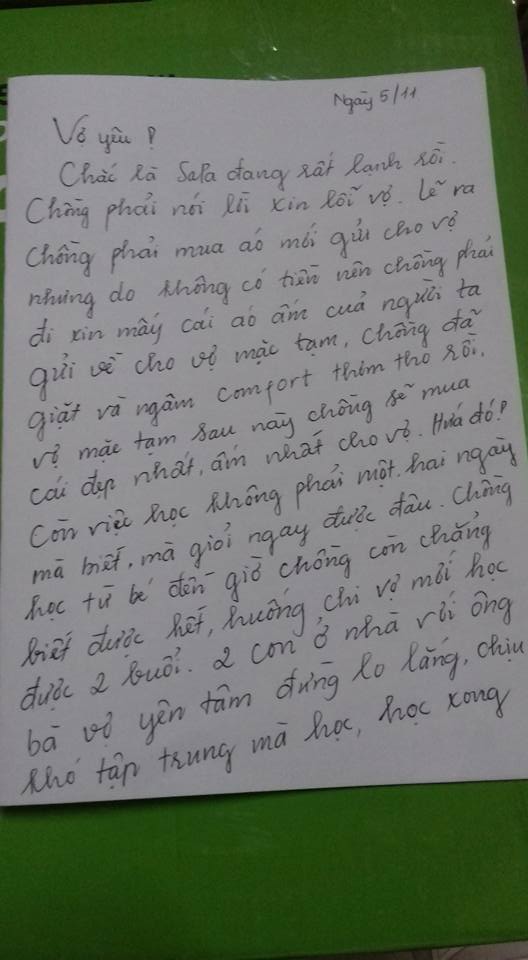 Ngày 5/11
Vợ yêu !
Chắc là SaPa đang rất lạnh rồi.
Chồng phải nói lời xin lỗi vợ. Lẽ ra
chồng phải mua áo mới gửi cho vợ
nhưng do không có tiền nên chồng phải
đi xin mấy cái áo ấm của người ta
gửi về cho vợ mặc tạm, chồng đã
giặt và ngâm comfort thơm tho rồi,
vợ mặc tạm sau này chồng sẽ mua
cái đẹp nhất, ấm nhất cho vợ. Hứa đó!
Còn việc học không phải một, hai ngày
mà biết, mà giỏi ngay được đâu. Chồng
học từ bé đến giờ chồng còn chẳng
biết được hết, huống chi vợ mới học
được 2 buổi. 2 con ở nhà với ông
bà vợ yên tâm đừng lo lắng, chịu
khó tập trung mà học, học xong